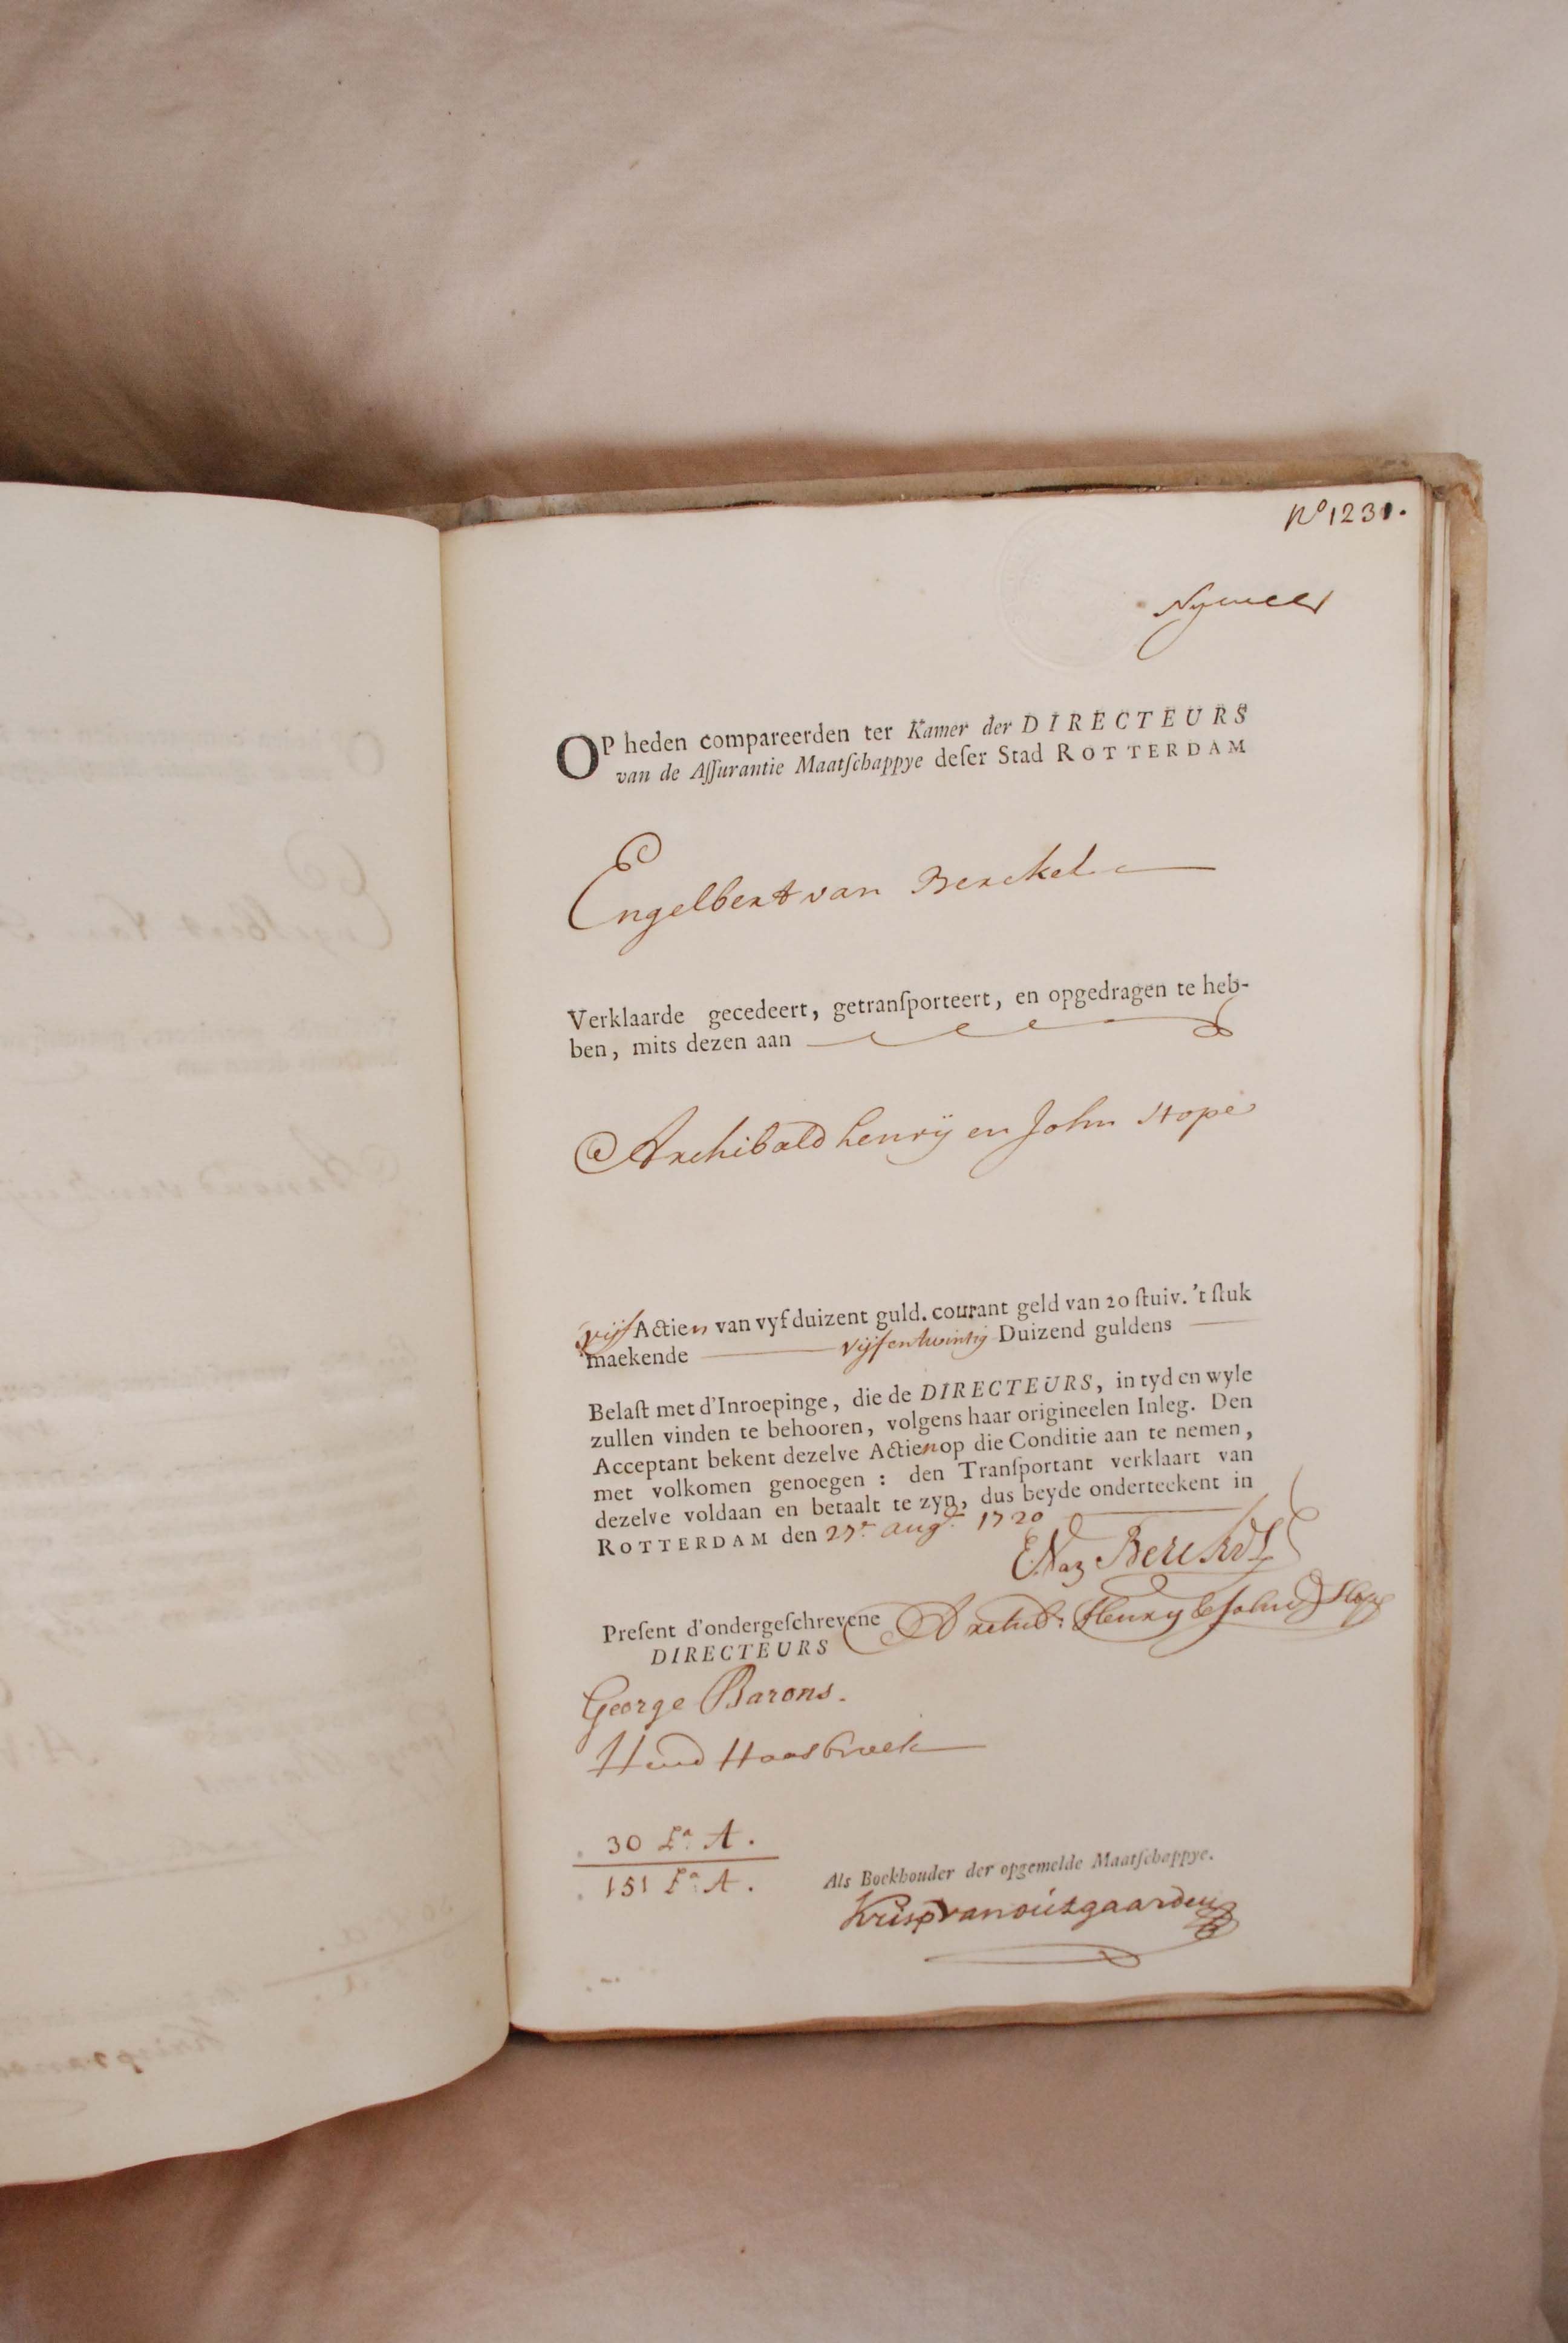 No 1231.
OP heden compareerden ter Kamer der DIRECTEURS
van de Aſſurantie Maatſchappye deſer Stad ROTTERDAM
Engelbert van Berckel
Verklaarde gecedeert, getranſporteert, en opgedragen te heb-
ben, mits dezen aan
Archibald henrij en John Hope
vijf Actien van vyf duizent guld. courant geld van 20 ſtuiv. 't ſtuk
maekende vijfentwintig Duizend guldens
Belaſt met d'Inroepinge, die de DIRECTEURS, in tyd en wyle
zullen vinden te behooren, volgens haar origineelen Inleg. Den
Acceptant bekent dezelve Actien op die Conditie aan te nemen,
met volkomen genoegen : den Tranſportant verklaart van
dezelve voldaan en betaalt te zyn, dus beyde onderteekent in
ROTTERDAM den 27e aug 1720
Preſent d'ondergeſchrevene Archib: Henry & John Hope
DIRECTEURS
George Barons.
Hend Haasbroek
30 La A.
151 La A.
Als Boekhouder der opgemelde Maatſchappye.
Krisp van outgaarden